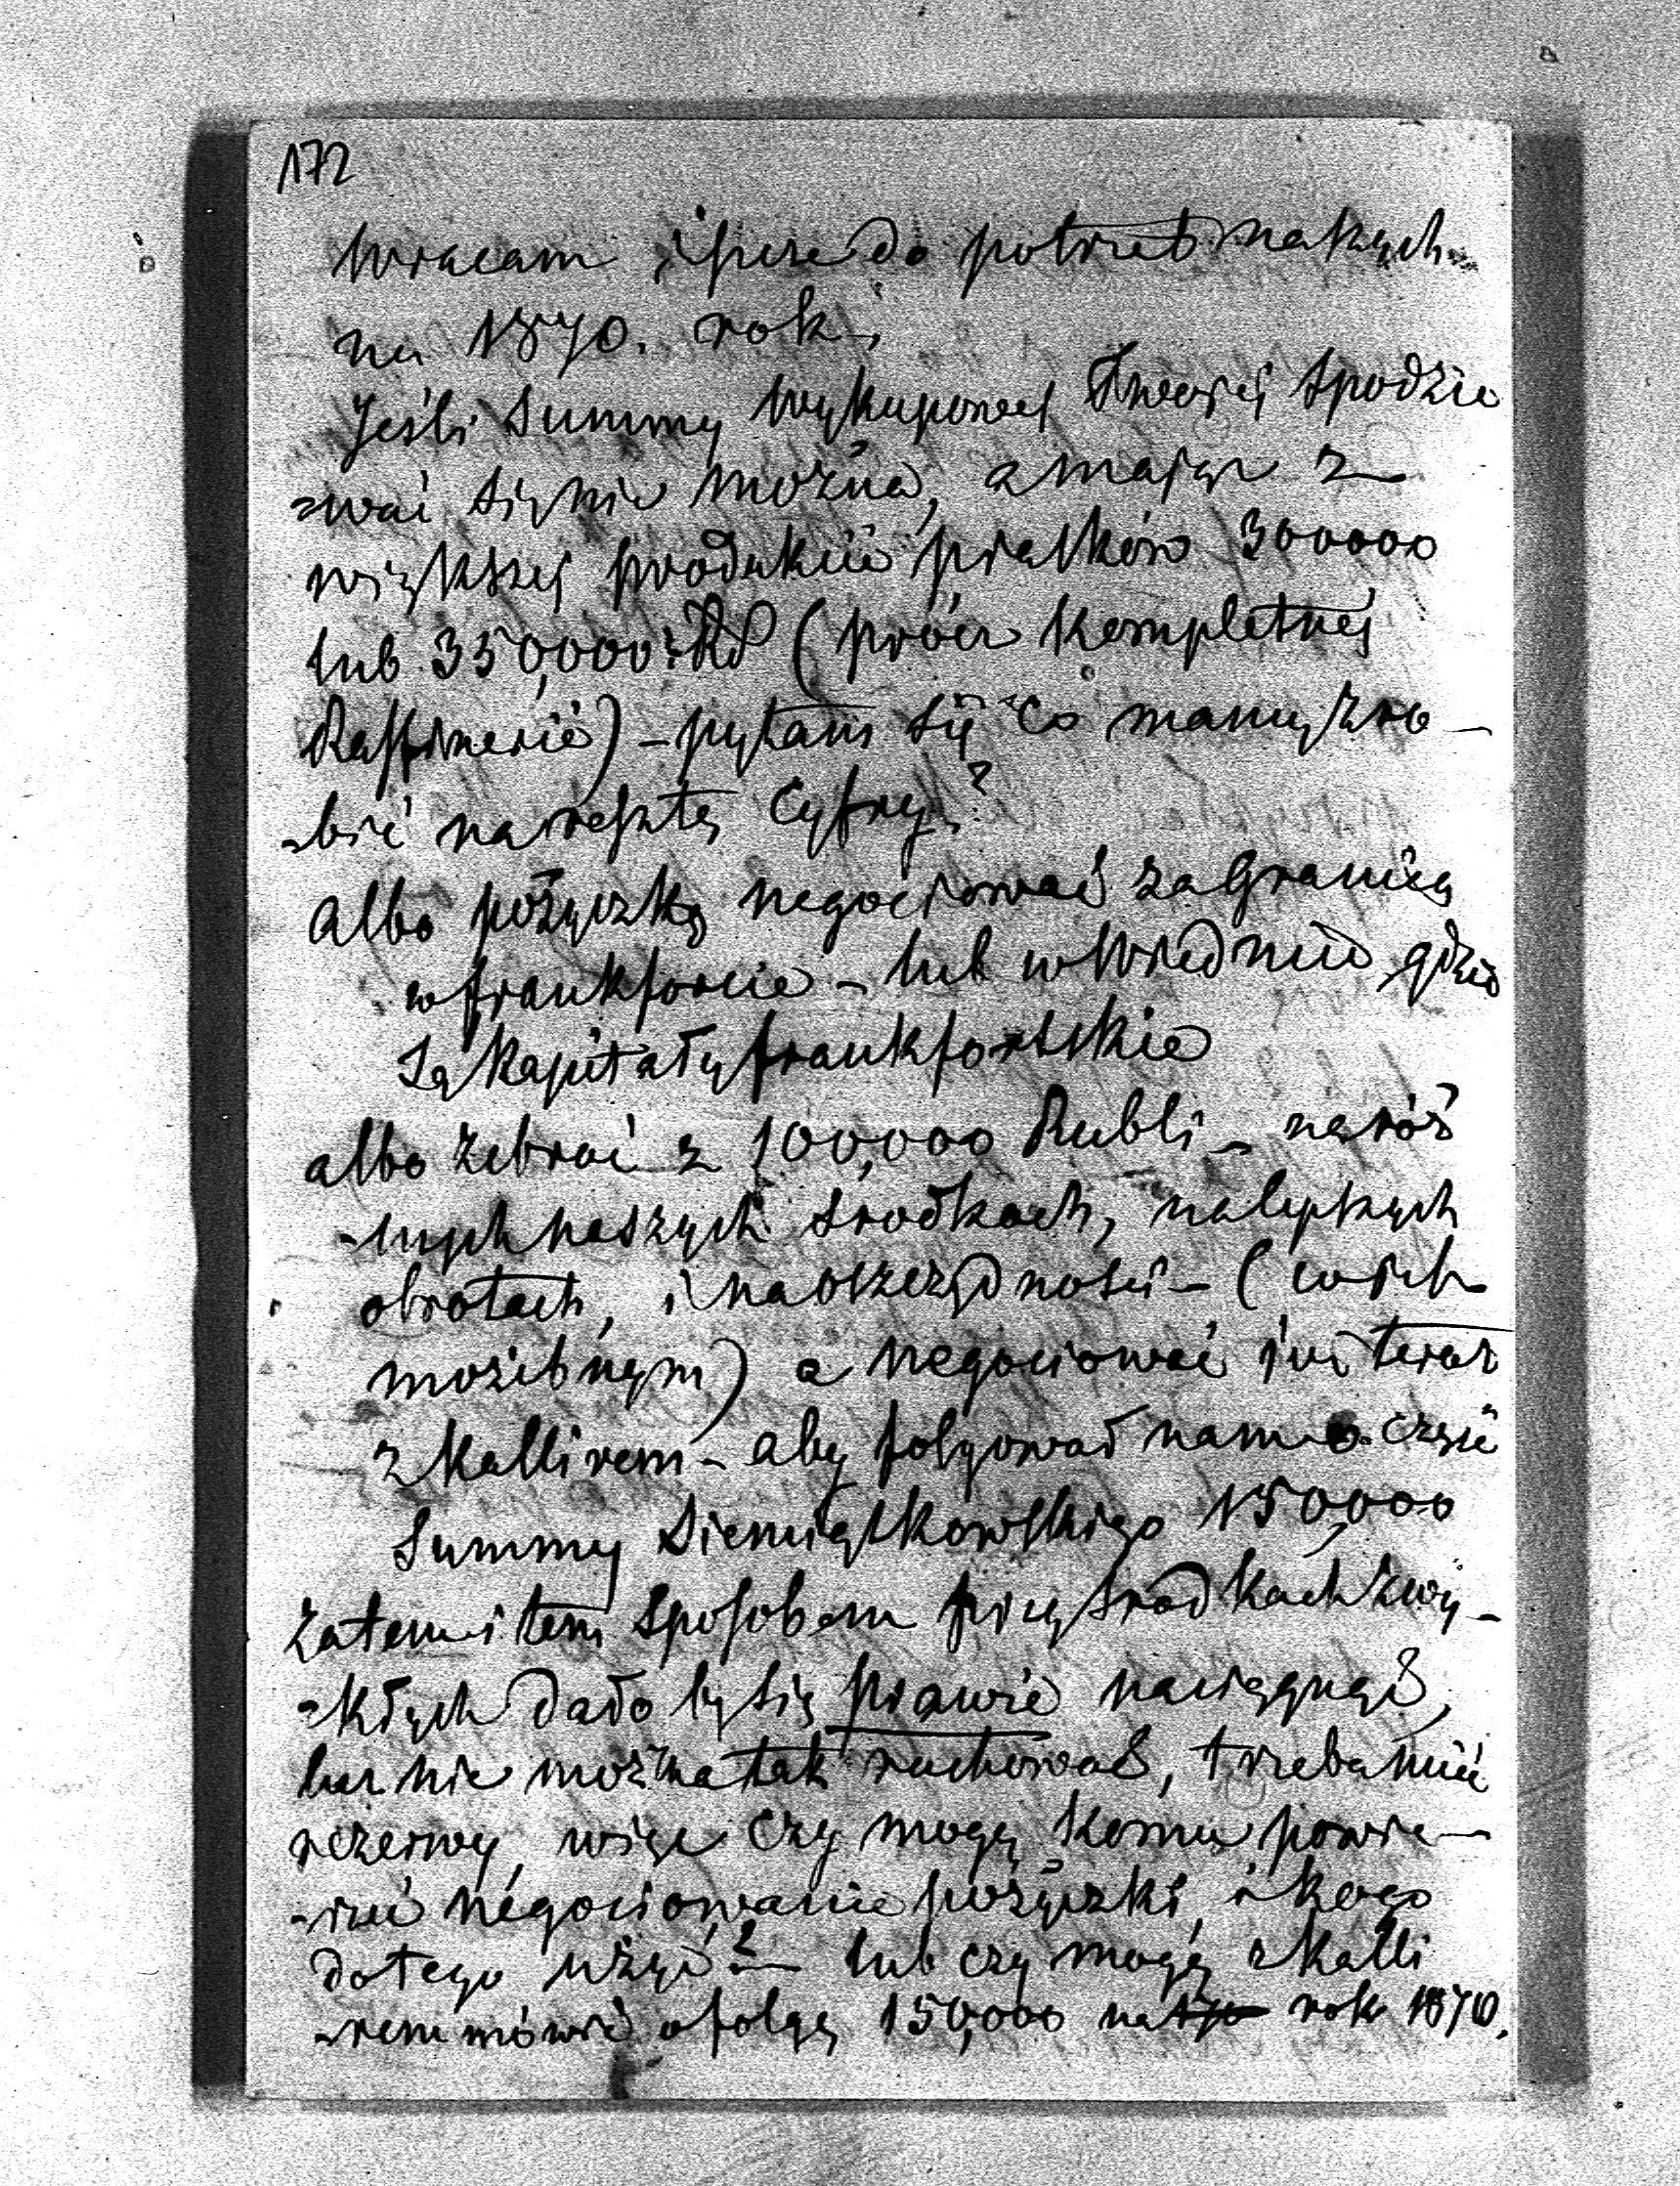 172
Wracam jeszcze do potrzeb naszych
na 1870. rok.
Jeśli Summy wykupowej Twojej spodzie
=wać się nie można, a mając z
większej produkcii piasków 300000
lub 350,000 RS (prócz kompletnej
Raffinerii) – pytam się co mamy zro–
-bić na resztę cyfry?
albo pożyczkę negociować za Granicą
w frankforcie – lub w Wiedniu gdzie
Są Kapitały frankfortskie
albo zebrać z 100,000 Rubli – na róż
-nych naszych środkach, na lepszych
obrotach, i na oszczędności – (w ich
możebnym) a negociować już teraz
z Kallirem – aby folgował nam część
Summy Siemiątkowskiego 150,000
Zatem i tem sposobem przy środkach zwy–
-kłych dało by się prawie naciągnąć,
lecz nie można tak rachować, trzeba mieć
rezerwy, więc czy mogę komu powie–
-rzeć negociowanie pożyczki, i kogo
do tego użyć? – lub czy mogę z Kalli
-rem mówić o folgę 150,000 na rok 1870.